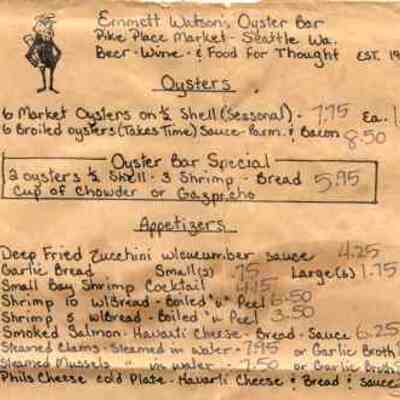 Emmett Watsons Oyster Bar
Pike Place Market - Seattle Wa.
Beer - Wine - & Food For Thought EST. 19
Oysters
6 Market Oysters on ½ Shell (Seasonal) - 7.95 Ea. 1
6 Broiled oysters (Takes Time) Sauce - Parm. & Bacon 8.50
Oyster Bar Special
2 oysters ½ Shell - 3 Shrimp - Bread 5.95
Cup of Chowder or Gazpacho
Appetizers
Deep Fried Zucchini w/cucumber sauce 4.25
Garlic Bread Small(s) .75 Large(6) 1.75
Small Bay Shrimp Cocktail 4.45
Shrimp 10 w/Bread - Boiled "u" Peel 6.50
Shrimp 5 w/Bread - Boiled "u" Peel 3.50
Smoked Salmon - Havarti Cheese - Bread - Sauce 6.25
Steamed Clams - Steamed in water - 7.95 or Garlic Broth
Steamed Mussels " in water - 7.50 or Garlic Broth
Phils Cheese cold Plate - Havarti Cheese & Bread & sauce